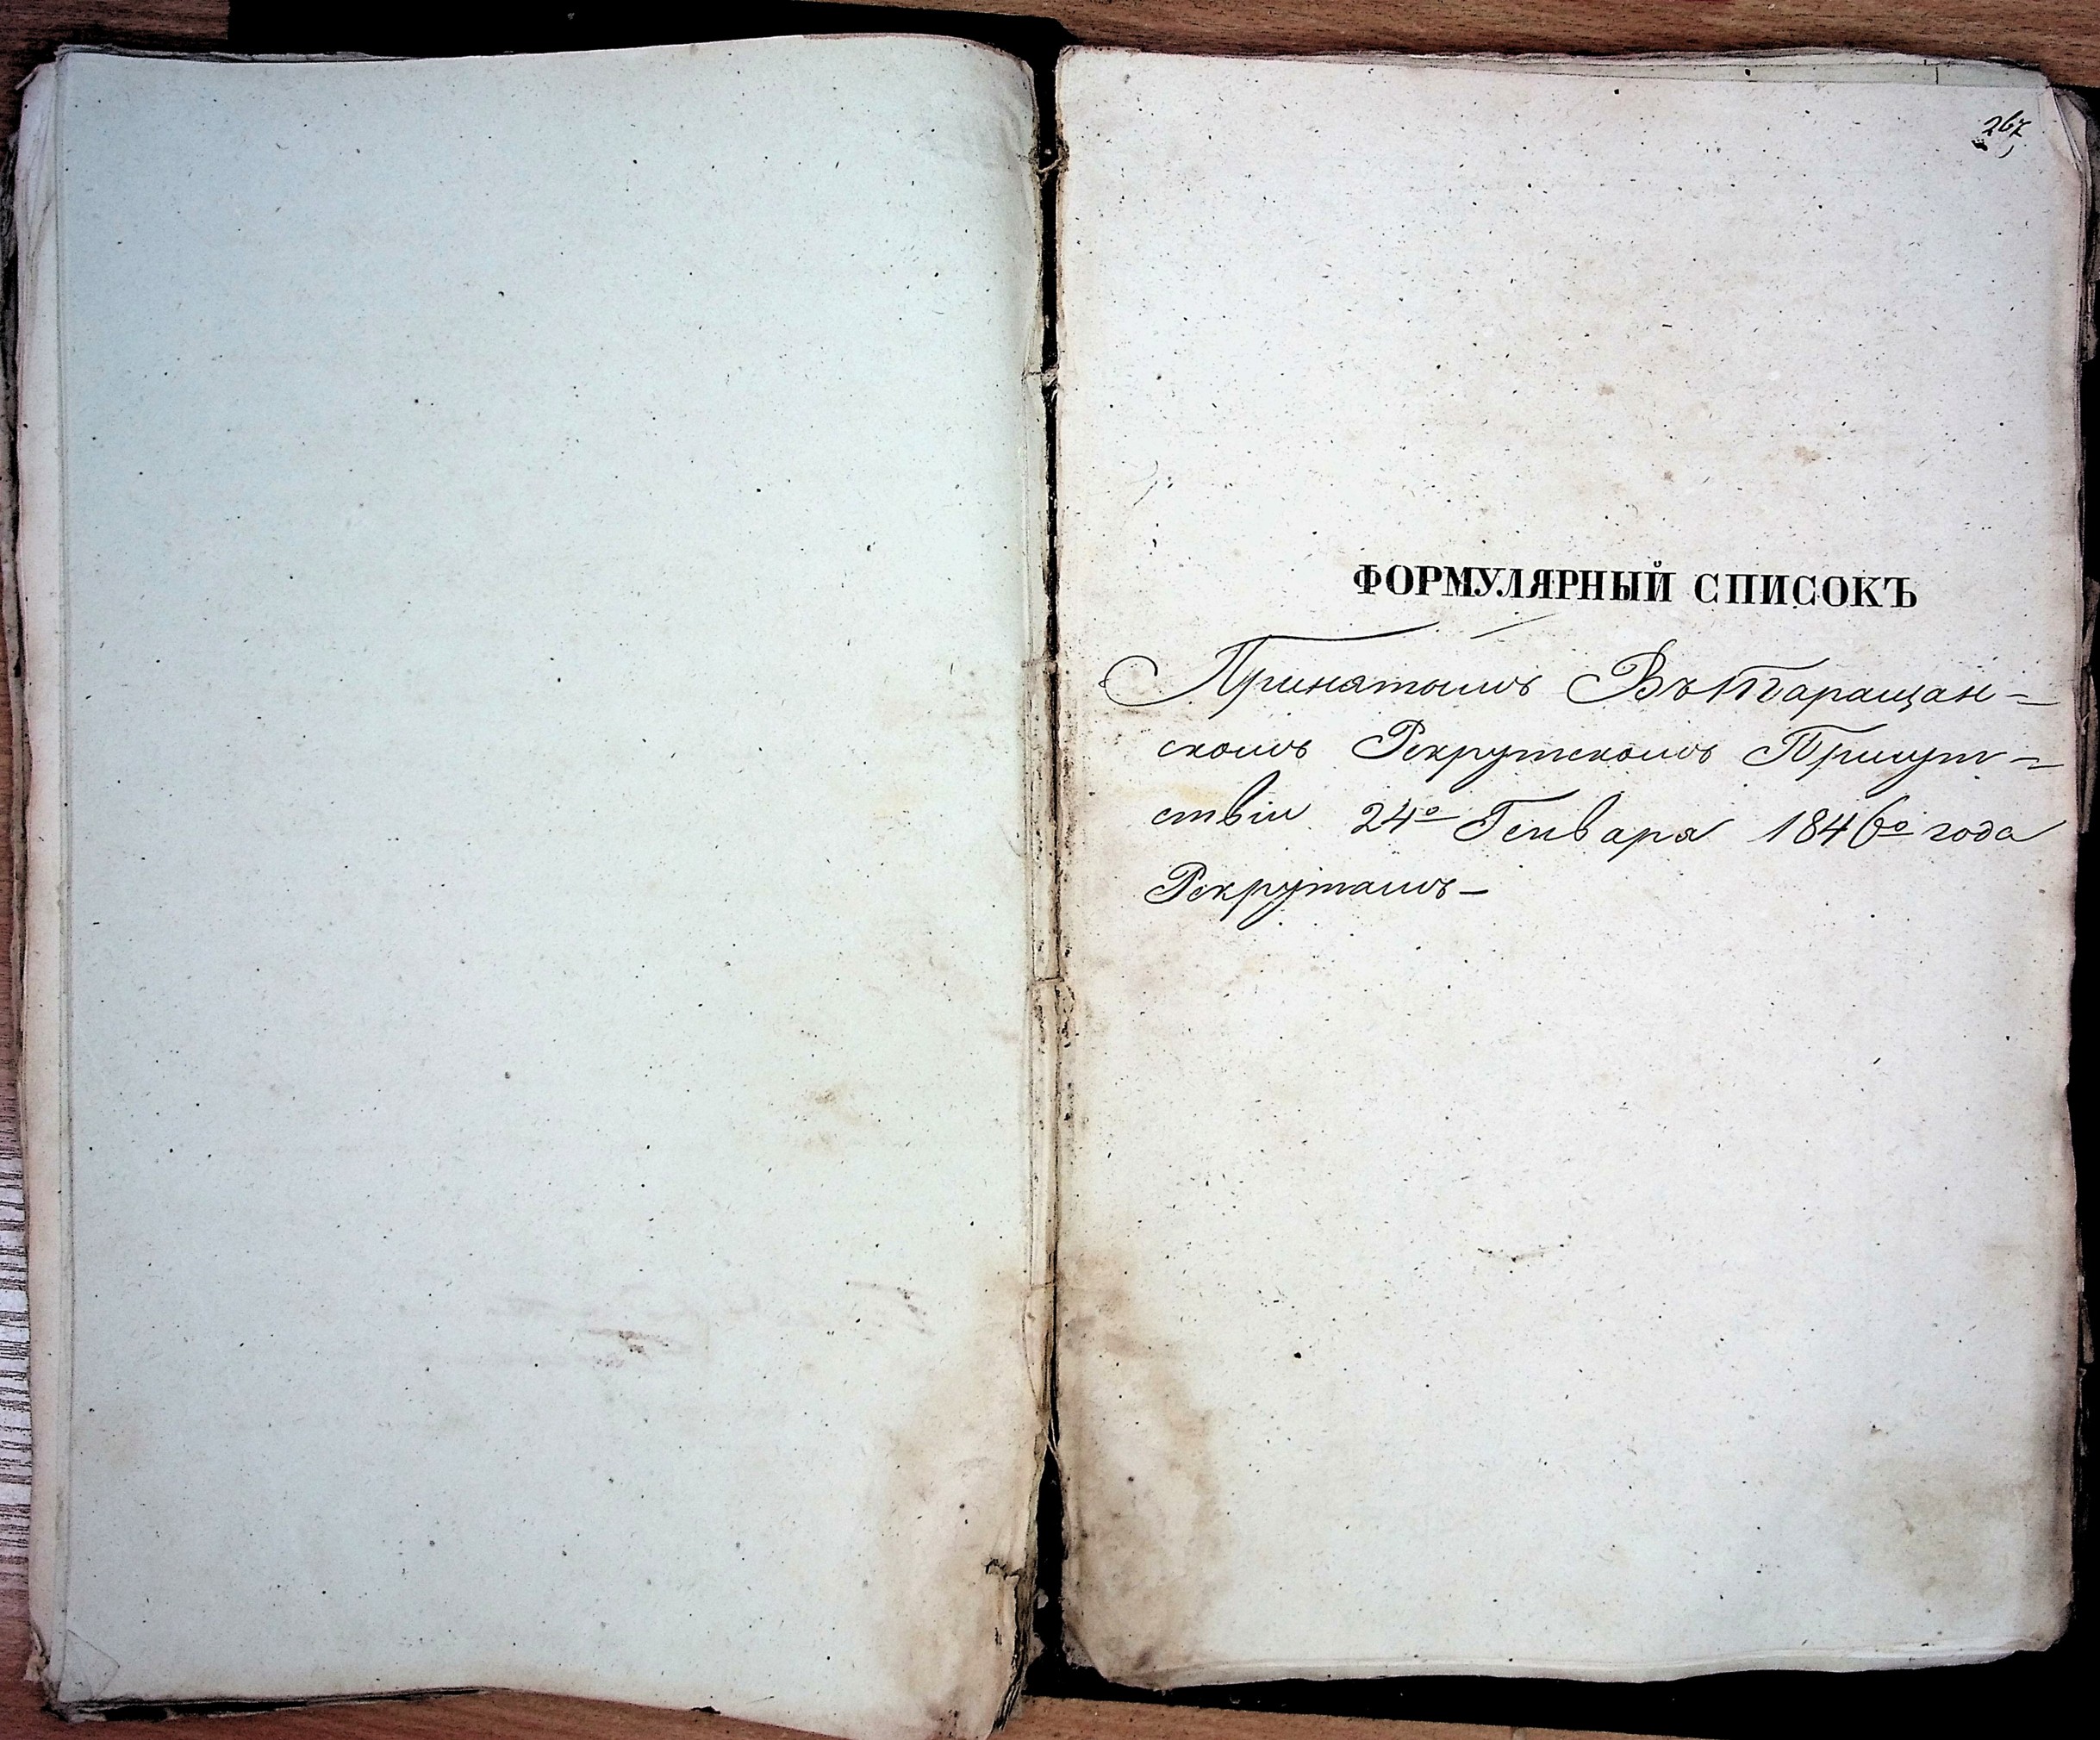 267
ФОРМУЛЯРНЫЙ СПИСОКЪ
Принятымъ Въ Таращан-
скомъ Рекрутскомъ Присут-
ствіи 24º Генваря 1846º года
Рекрутамъ-